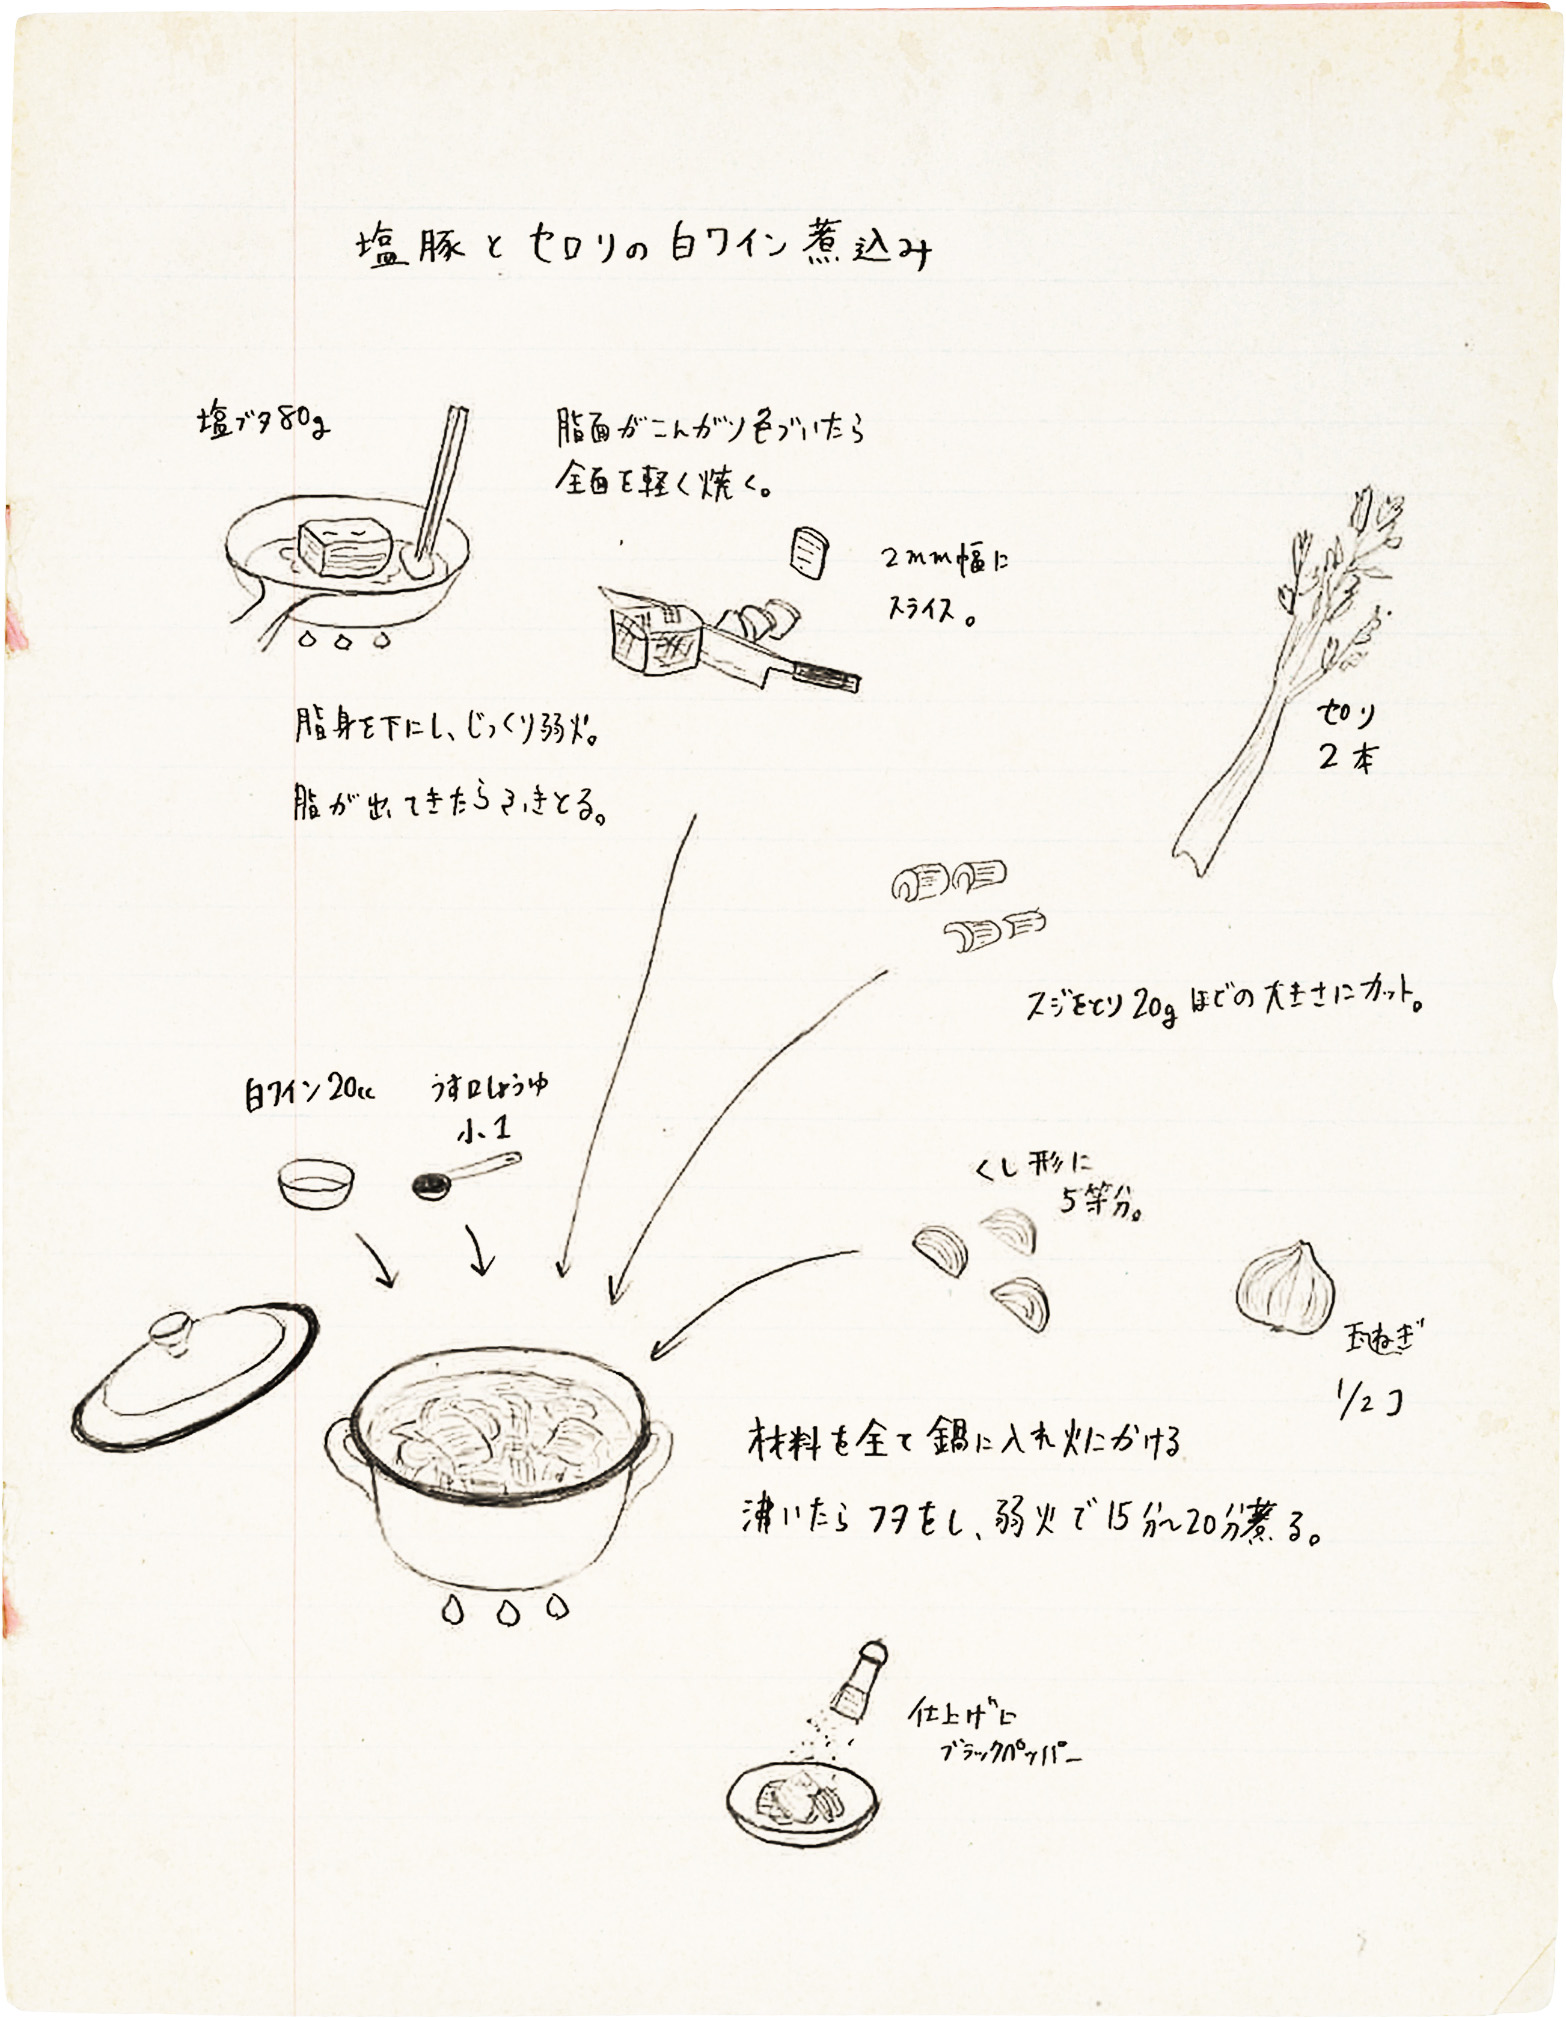 塩豚とセロリの白ワイン煮込み
塩ブタ80g
脂面がこんがり色づいたら
全面を軽く焼く。
2mm幅に
スライス。
脂身を下にし、じっくり弱火。
脂が出てきたらふきとる。
セロリ
2本
スジをとり20gほどの大きさにカット。
白ワイン20cc
うす口しょうゆ
小1
くし形に
5等分。
玉ねぎ
1/2コ
材料を全て鍋に入れ火にかける
沸いたらフタをし、弱火で15分〜20分煮る。
仕上げに
ブラックペッパー